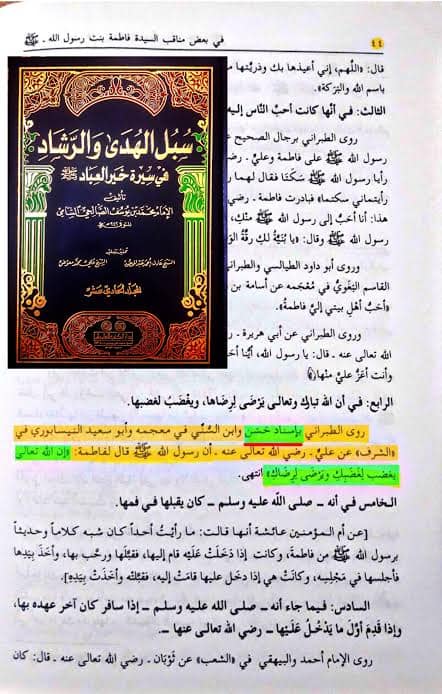 ٤٤
في بعض مناقب السيدة فاطمة بنت رسول الله ـ ﷺ
قال: «اللَّهم، إني أعيذها بك وذريتها م
باسم الله والبَرَكة».
الثالث: في أنَّها كانت أحبَّ النَّاس إليه
روى الطبراني برجال الصحيح ع
رسول الله ﷺ على فاطمة وعليٍّ ـ رضي
رأيا رسول الله ﷺ سَكَتَا فقال لهما ر
رأيتماني سكتما» فبادرت فاطمة ـ رضي
هذا: أنا أحَبُّ إلى رسول الله ﷺ مِنْكِ،
رسول الله ﷺ وقال: «يا بُنَيَّةُ لكِ رِقَّةُ الوَ
وروى أبو داود الطيالسي والطبراني
القاسم البَغَوِيُّ في مُعْجَمه عن أسامة بن
«أحَبُّ أهل بيتي إليَّ فاطمةُ».
وروى الطبراني عن أبي هريرة ـ ر
الله تعالى عنه ـ قال: يا رسول الله، أيُّنا أحَ
وأنت أعَزُّ عليَّ منها»
سُبُل الهُدى والرَّشاد
في سيرة خير العباد ﷺ
تأليف
الإمام محمد بن يوسف الصالحي الشامي
تحقيق وتعليق
الشيخ عادل أحمد عبد الموجود
الشيخ علي محمد معوض
الجزء الحادي عشر
الرابع: في أن الله تبارك وتعالى يَرْضَى لِرِضَاها، ويغْضَبُ لغضبها.
روى الطبراني بإسناد حَسَن وابن السُّنِّي في معجمه وأبو سعيد النيسابوري في
«الشرف» عن عليٍّ ـ رضي الله تعالى عنه ـ أن رسول الله ﷺ قال لفاطمة: «إن الله تعالى
يغضب لِغَضَبِكِ ويَرْضَى لِرِضَاكِ» انتهى.
الخامس في أنه ـ صلى الله عليه وسلم ـ كان يقبلها في فمها.
[عن أم المؤمنين عائشة أنها قالت: ما رأيْتُ أحداً كان شبه كلاماً وحديثاً
برسول الله ﷺ مِن فاطمة، وكانت إذا دَخَلَتْ عَلَيْه قام إليها، فقبَّلها ورحَّب بها، وأخَذَ بِيَدِها
فأجلسها في مَجْلِسِه، وكانَتْ هي إذا دخل عليها قامَتْ إليه، فقبَّلَتْه وأخَذَتْ بيَدِهِ].
السادس: فيما جاء أنه ـ صلى الله عليه وسلم ـ إذا سافر كان آخر عهده بها،
وإذا قَدِمَ أوَّلَ ما يَدْخُلُ عَلَيْها ـ رضي الله تعالى عنها ـ.
روى الإمام أحمد والبيهقي في «الشعب» عن ثَوْبَان ـ رضي الله تعالى عنه ـ قال: كان